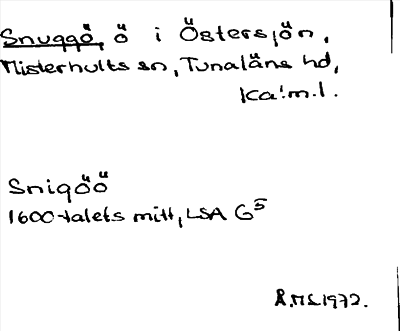 Snuggö, ö i Östersjön,
Misterhults sn, Tunaläns hd,
Kalm.l.
Snigöö
1600-talets mitt, LSA G5
R.M.L 1972.